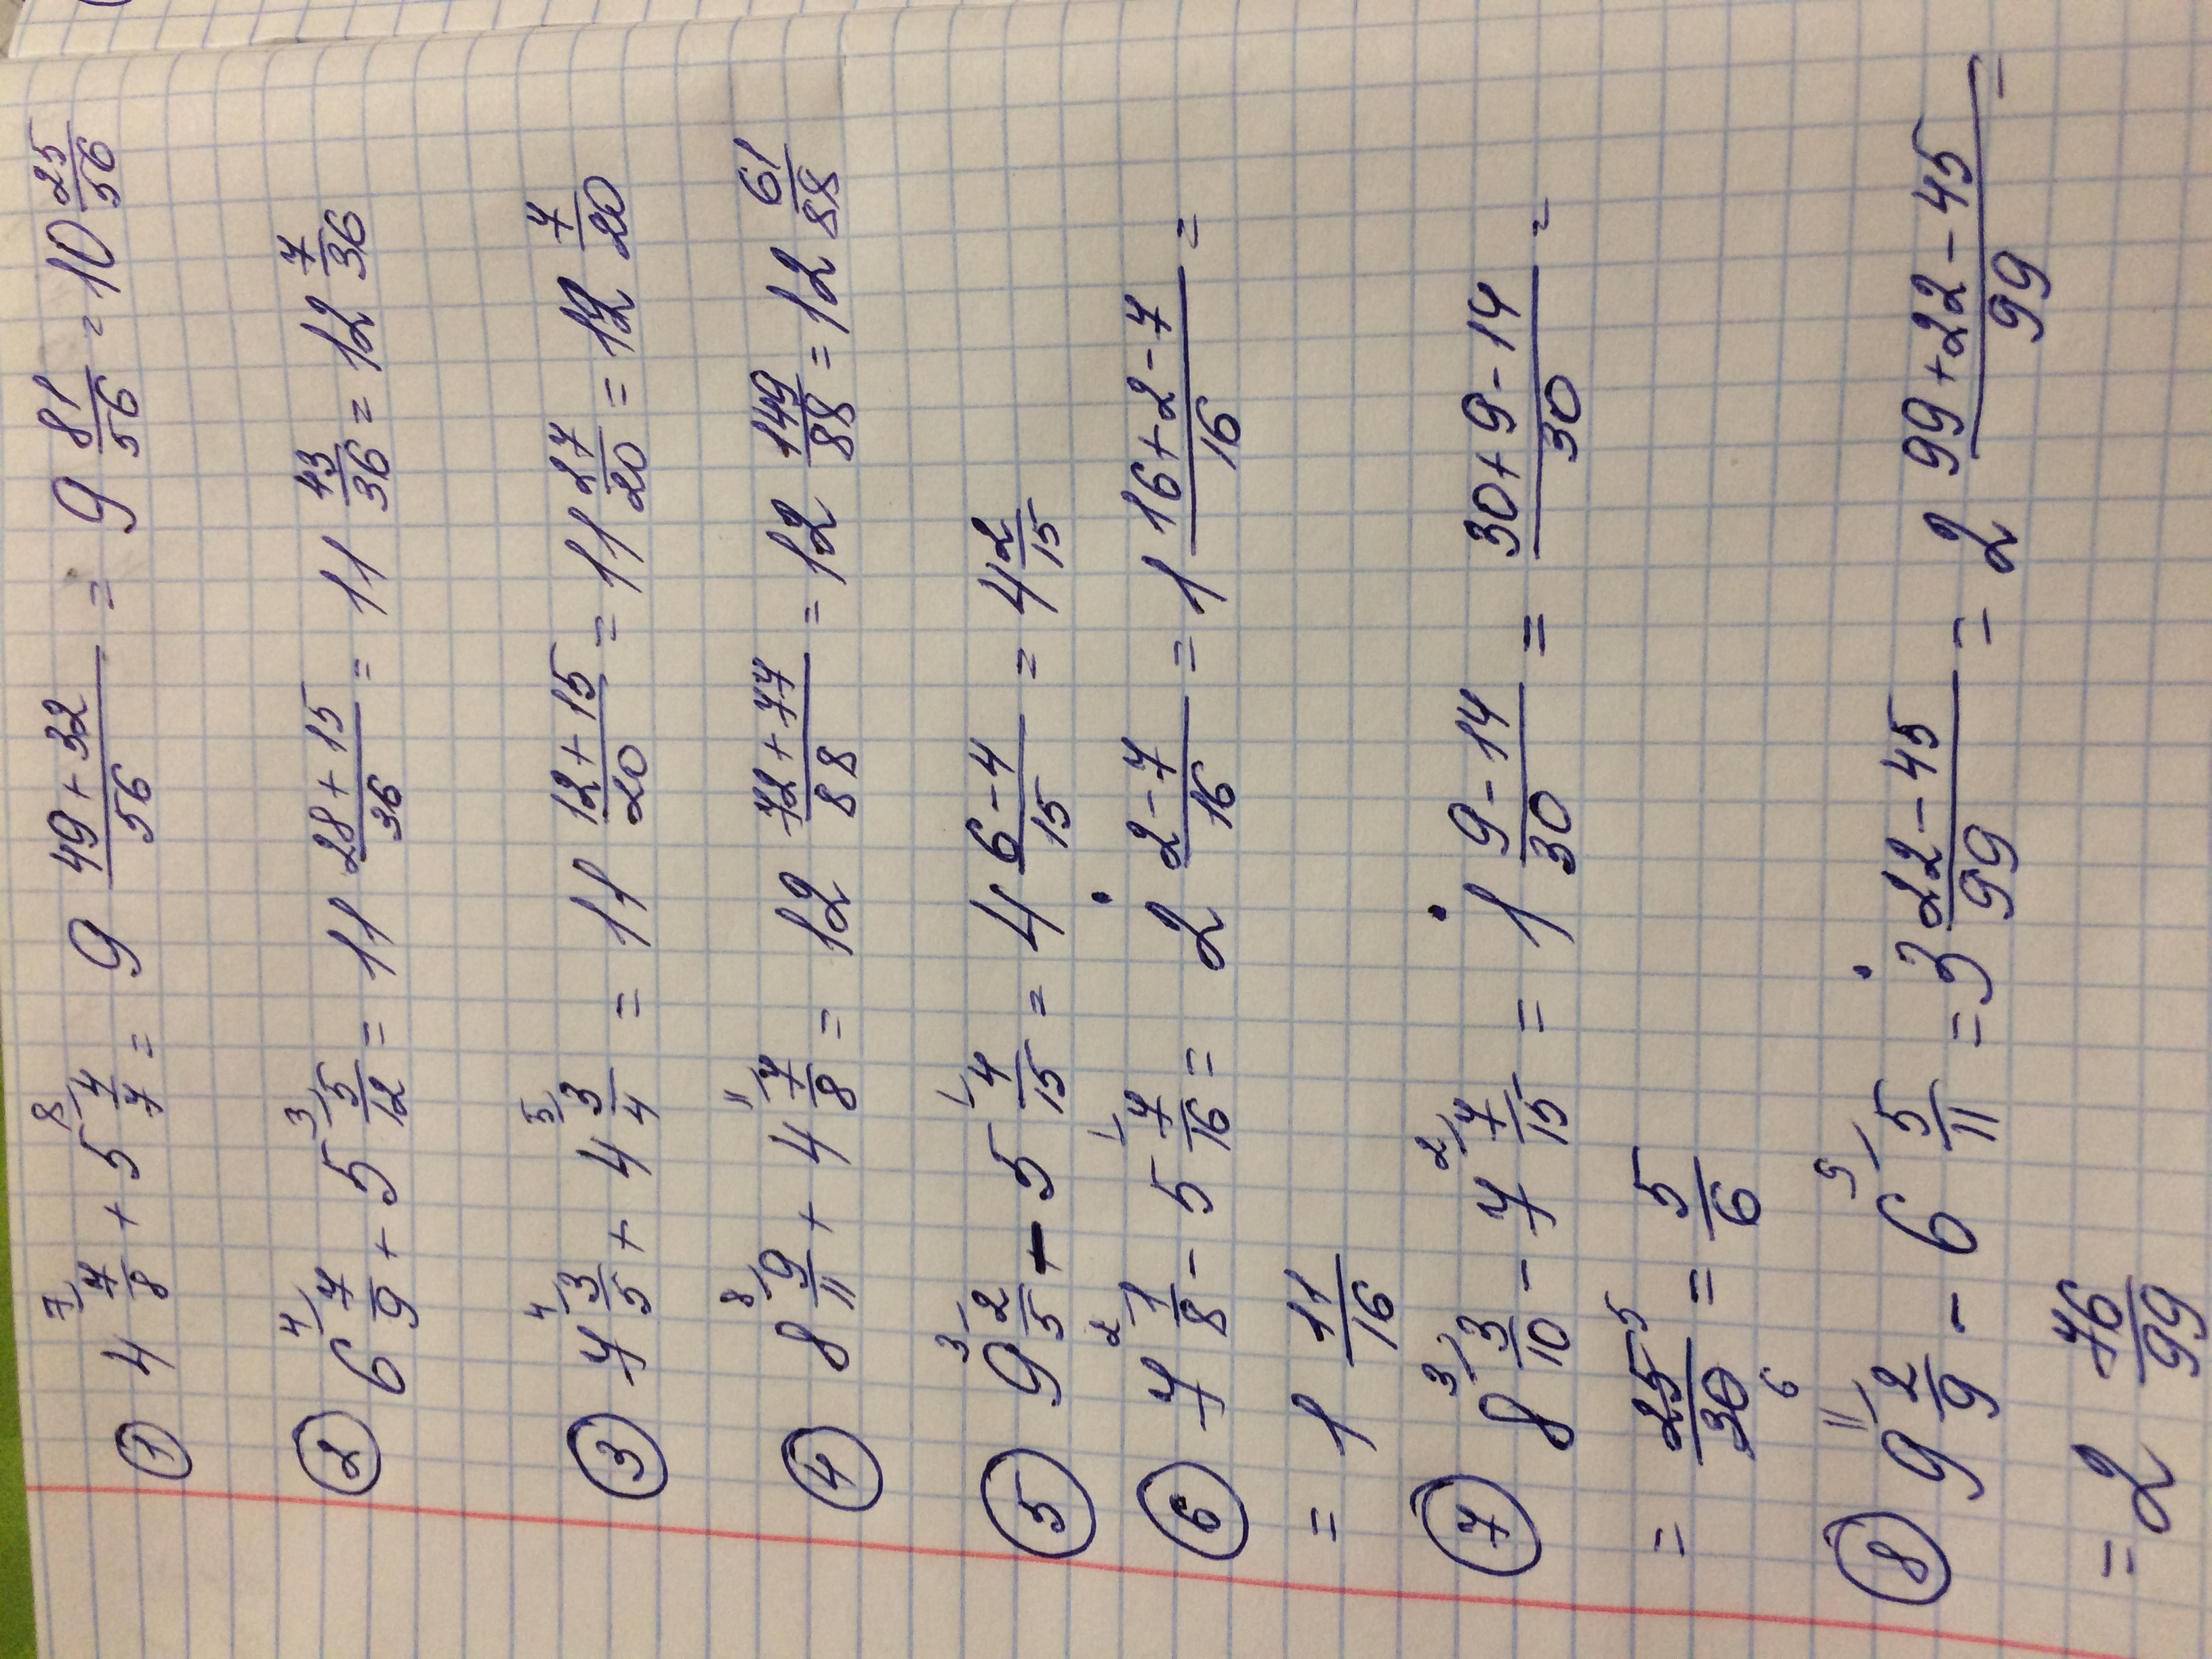 ① 4 7/8 + 5 4/7 = 9 (49+32)/56 = 9 81/56 = 10 25/56
② 6 7/9 + 5 5/12 = 11 (28+15)/36 = 11 43/36 = 12 7/36
③ 7 3/5 + 4 3/4 = 11 (12+15)/20 = 11 27/20 = 12 7/20
④ 8 9/11 + 4 7/8 = 12 (72+77)/88 = 12 149/88 = 12 61/88
⑤ 9 2/5 - 5 4/15 = 4 (6-4)/15 = 4 2/15
⑥ 7 1/8 - 5 7/16 = 2 (2-7)/16 = 1 (16+2-7)/16 =
= 1 11/16
⑦ 8 3/10 - 7 7/15 = 1 (9-14)/30 = (30+9-14)/30 =
= 25/30 = 5/6
⑧ 9 2/9 - 6 5/11 = 3 (22-45)/99 = 2 (99+22-45)/99 =
= 2 76/99